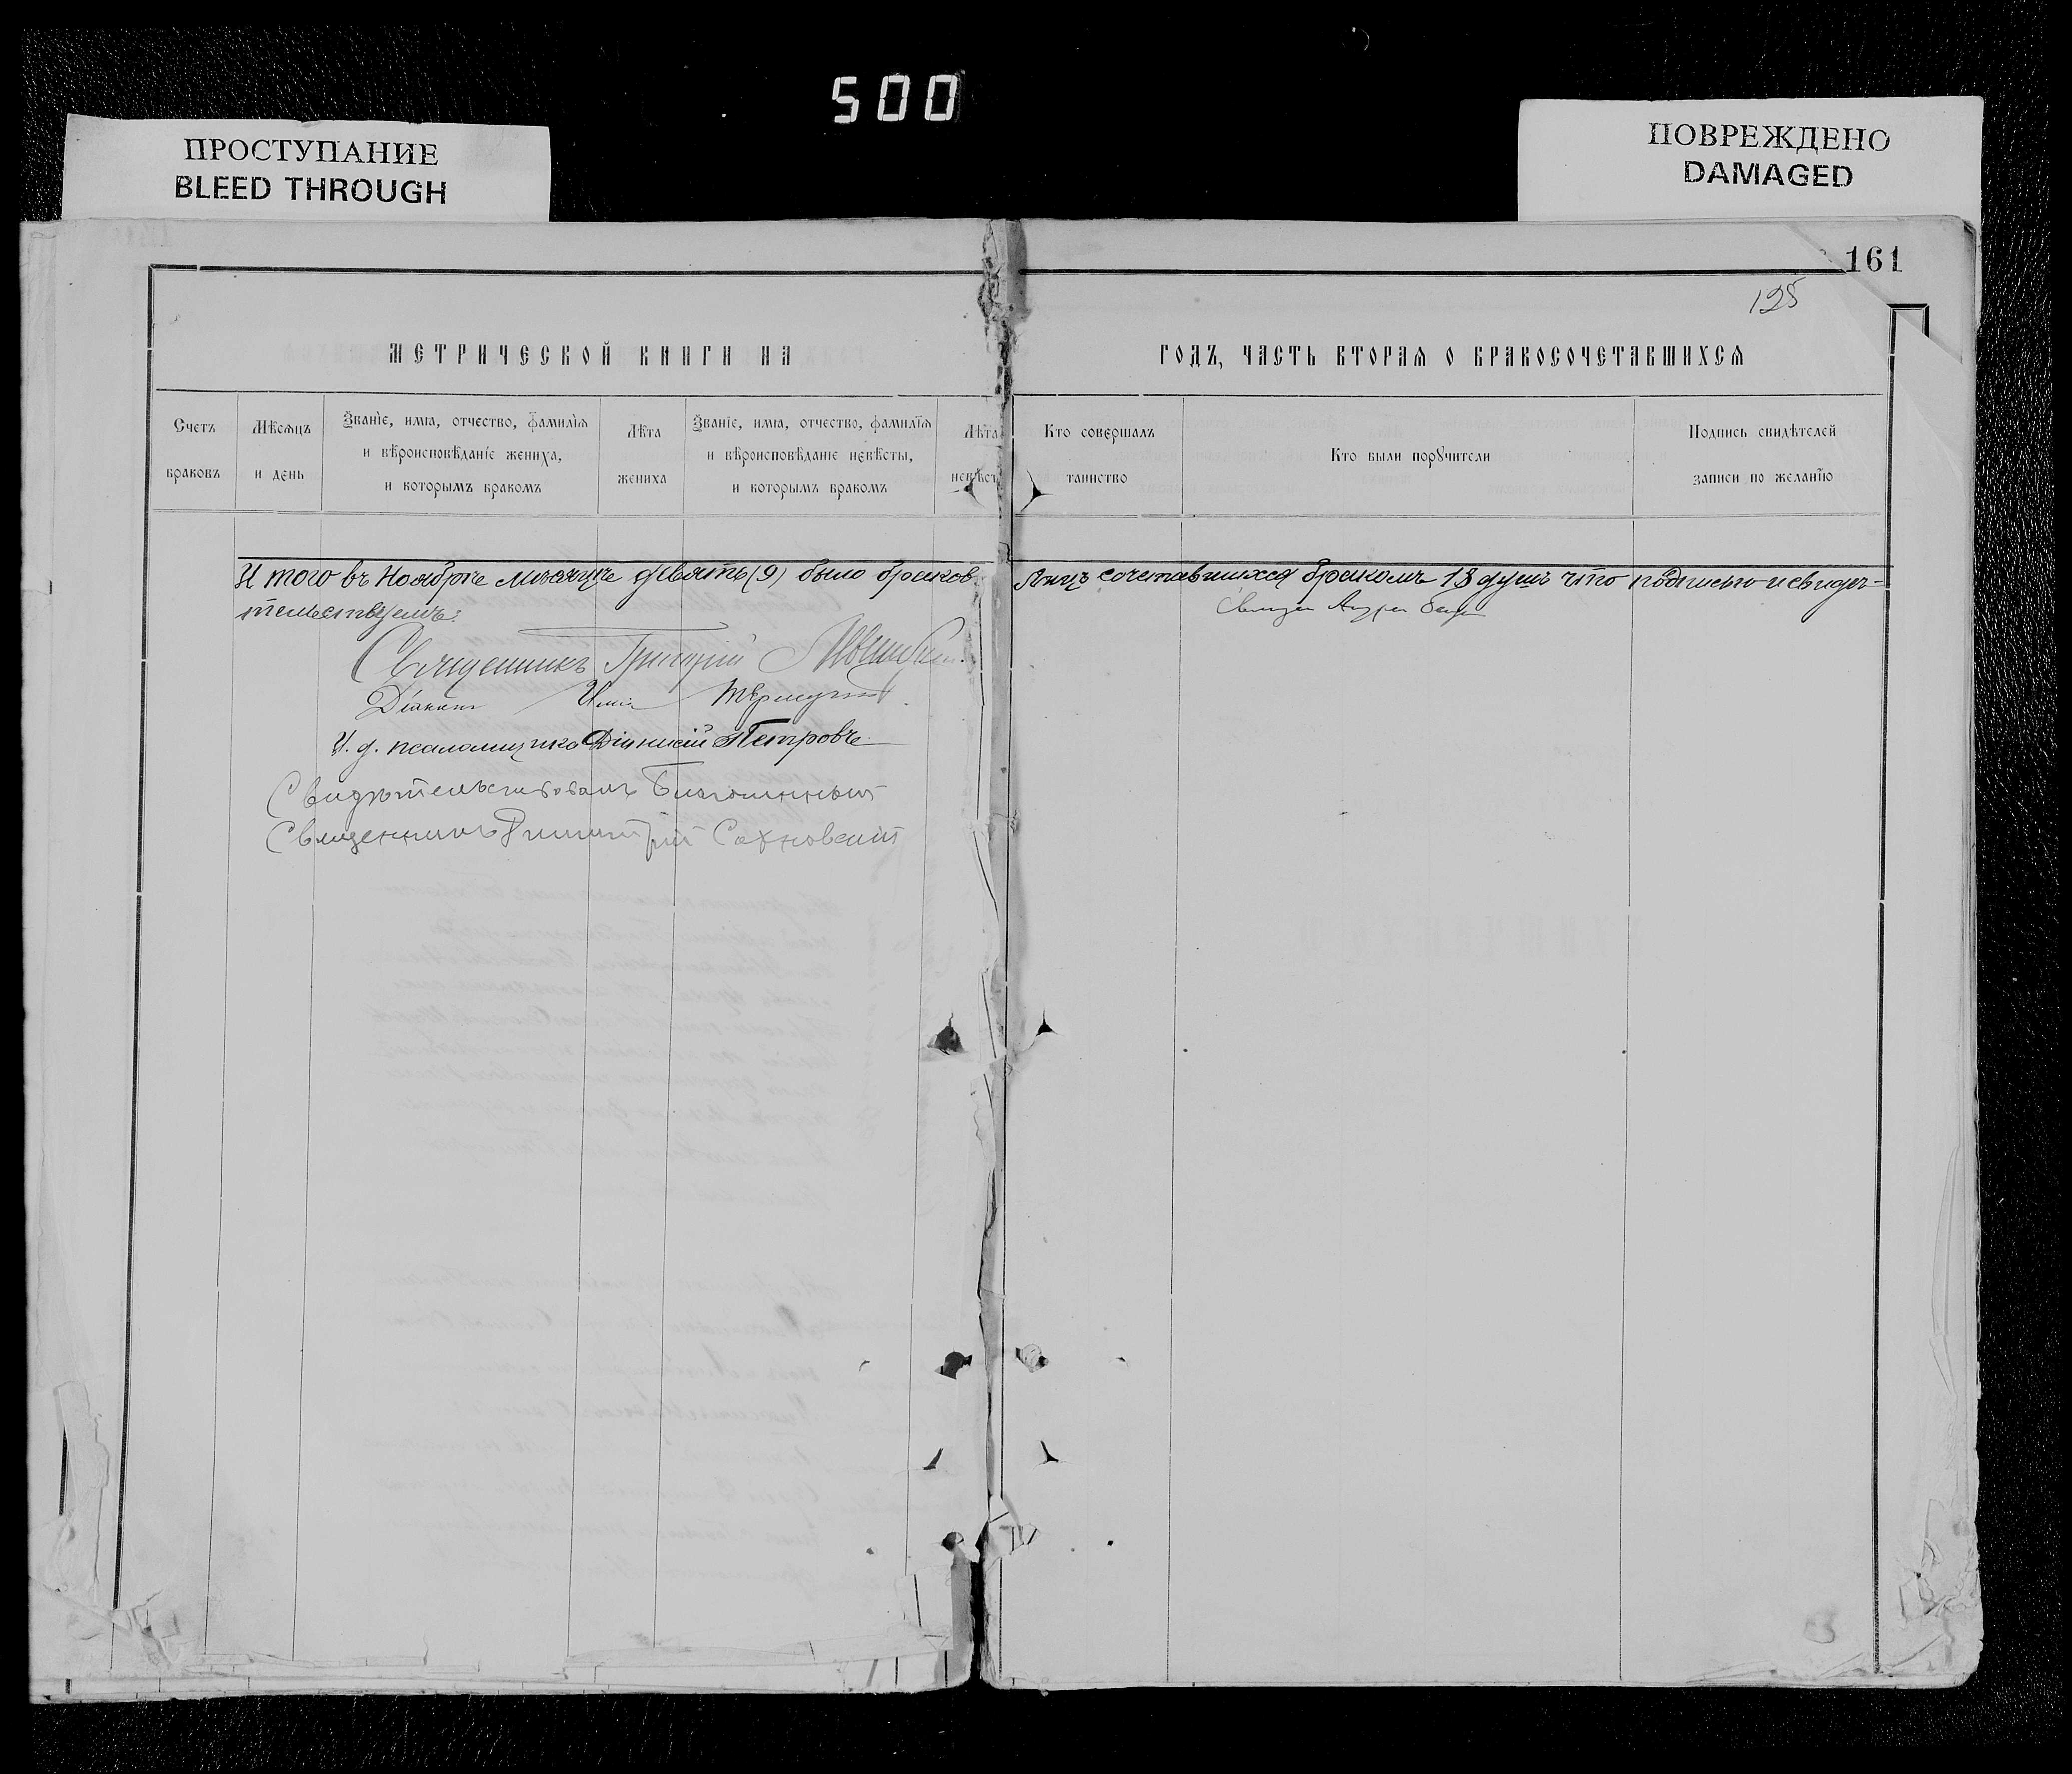 500
ПРОСТУПАНИЕ
BLEED THROUGH
ПОВРЕЖДЕНО
DAMAGED
161
125
МЕТРИЧЕСКОЙ КНИГИ НА
ГОДЪ, ЧАСТЬ ВТОРАЯ О БРАКОСОЧЕТАВШИХСЯ
Счетъ браковъ
Мѣсяцъ и день
Званіе, имя, отчество, фамилія и вѣроисповѣданіе жениха, и которымъ бракомъ
Лѣта жениха
Званіе, имя, отчество, фамилія и вѣроисповѣданіе невѣсты, и которымъ бракомъ
Лѣта невѣст
Кто совершалъ таинство
Кто были поручители
Подпись свидѣтелей записи по желанію
И того въ Ноябрѣ мѣсяцѣ девять (9) было браков.
Лицъ сочетавшихся бракомъ 18 душъ что подписью и свидѣ-
тельствуемъ:
Священникъ Григорій
Діаконъ Илія
И. д. псаломщика Діонисій Петровъ
Свидѣтельствовалъ Благочинный
Священникъ Димитрій Сахновскій